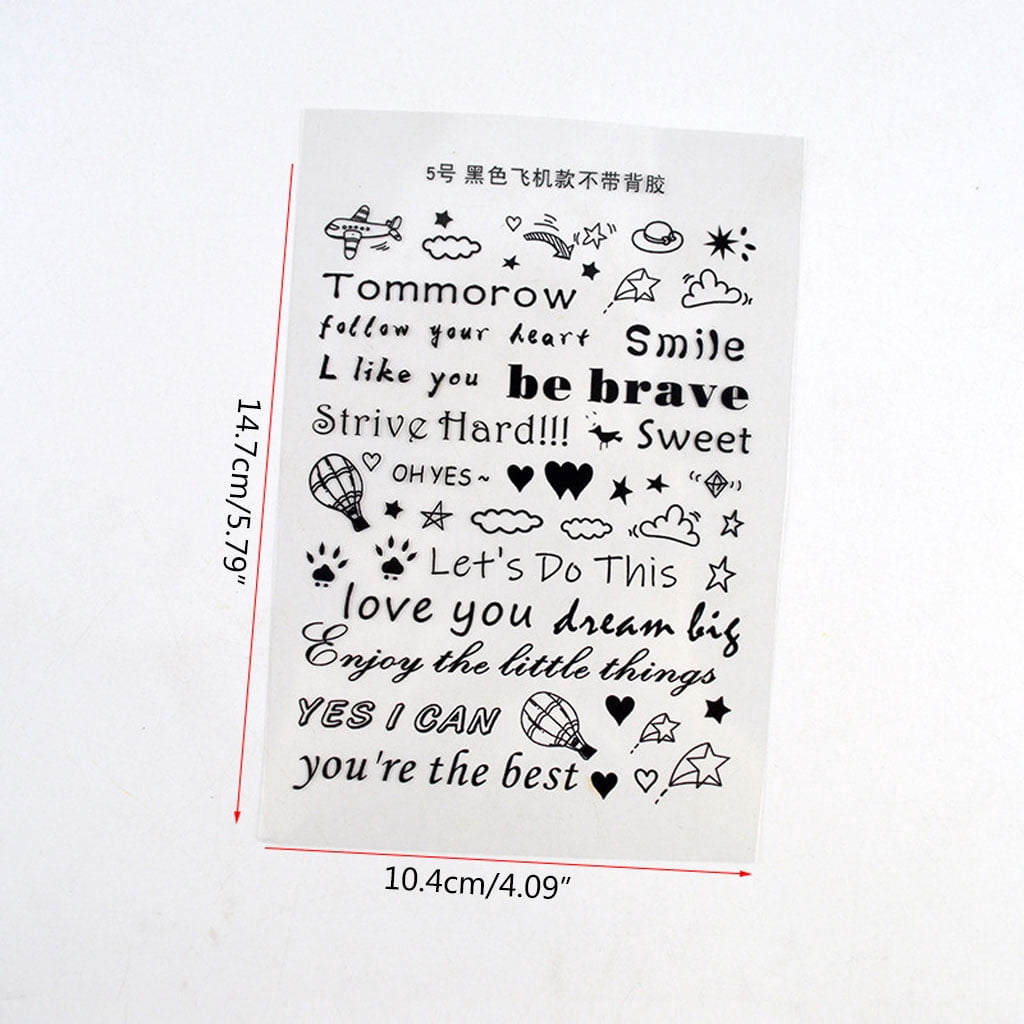 5号 黑色飞机款不带背胶
Tommorow
follow your heart
Smile
L like you
be brave
Strive Hard!!!
Sweet
OH YES ~
Let's Do This
love you
dream big
Enjoy the little things
YES I CAN
you're the best
14.7cm/5.79”
10.4cm/4.09”